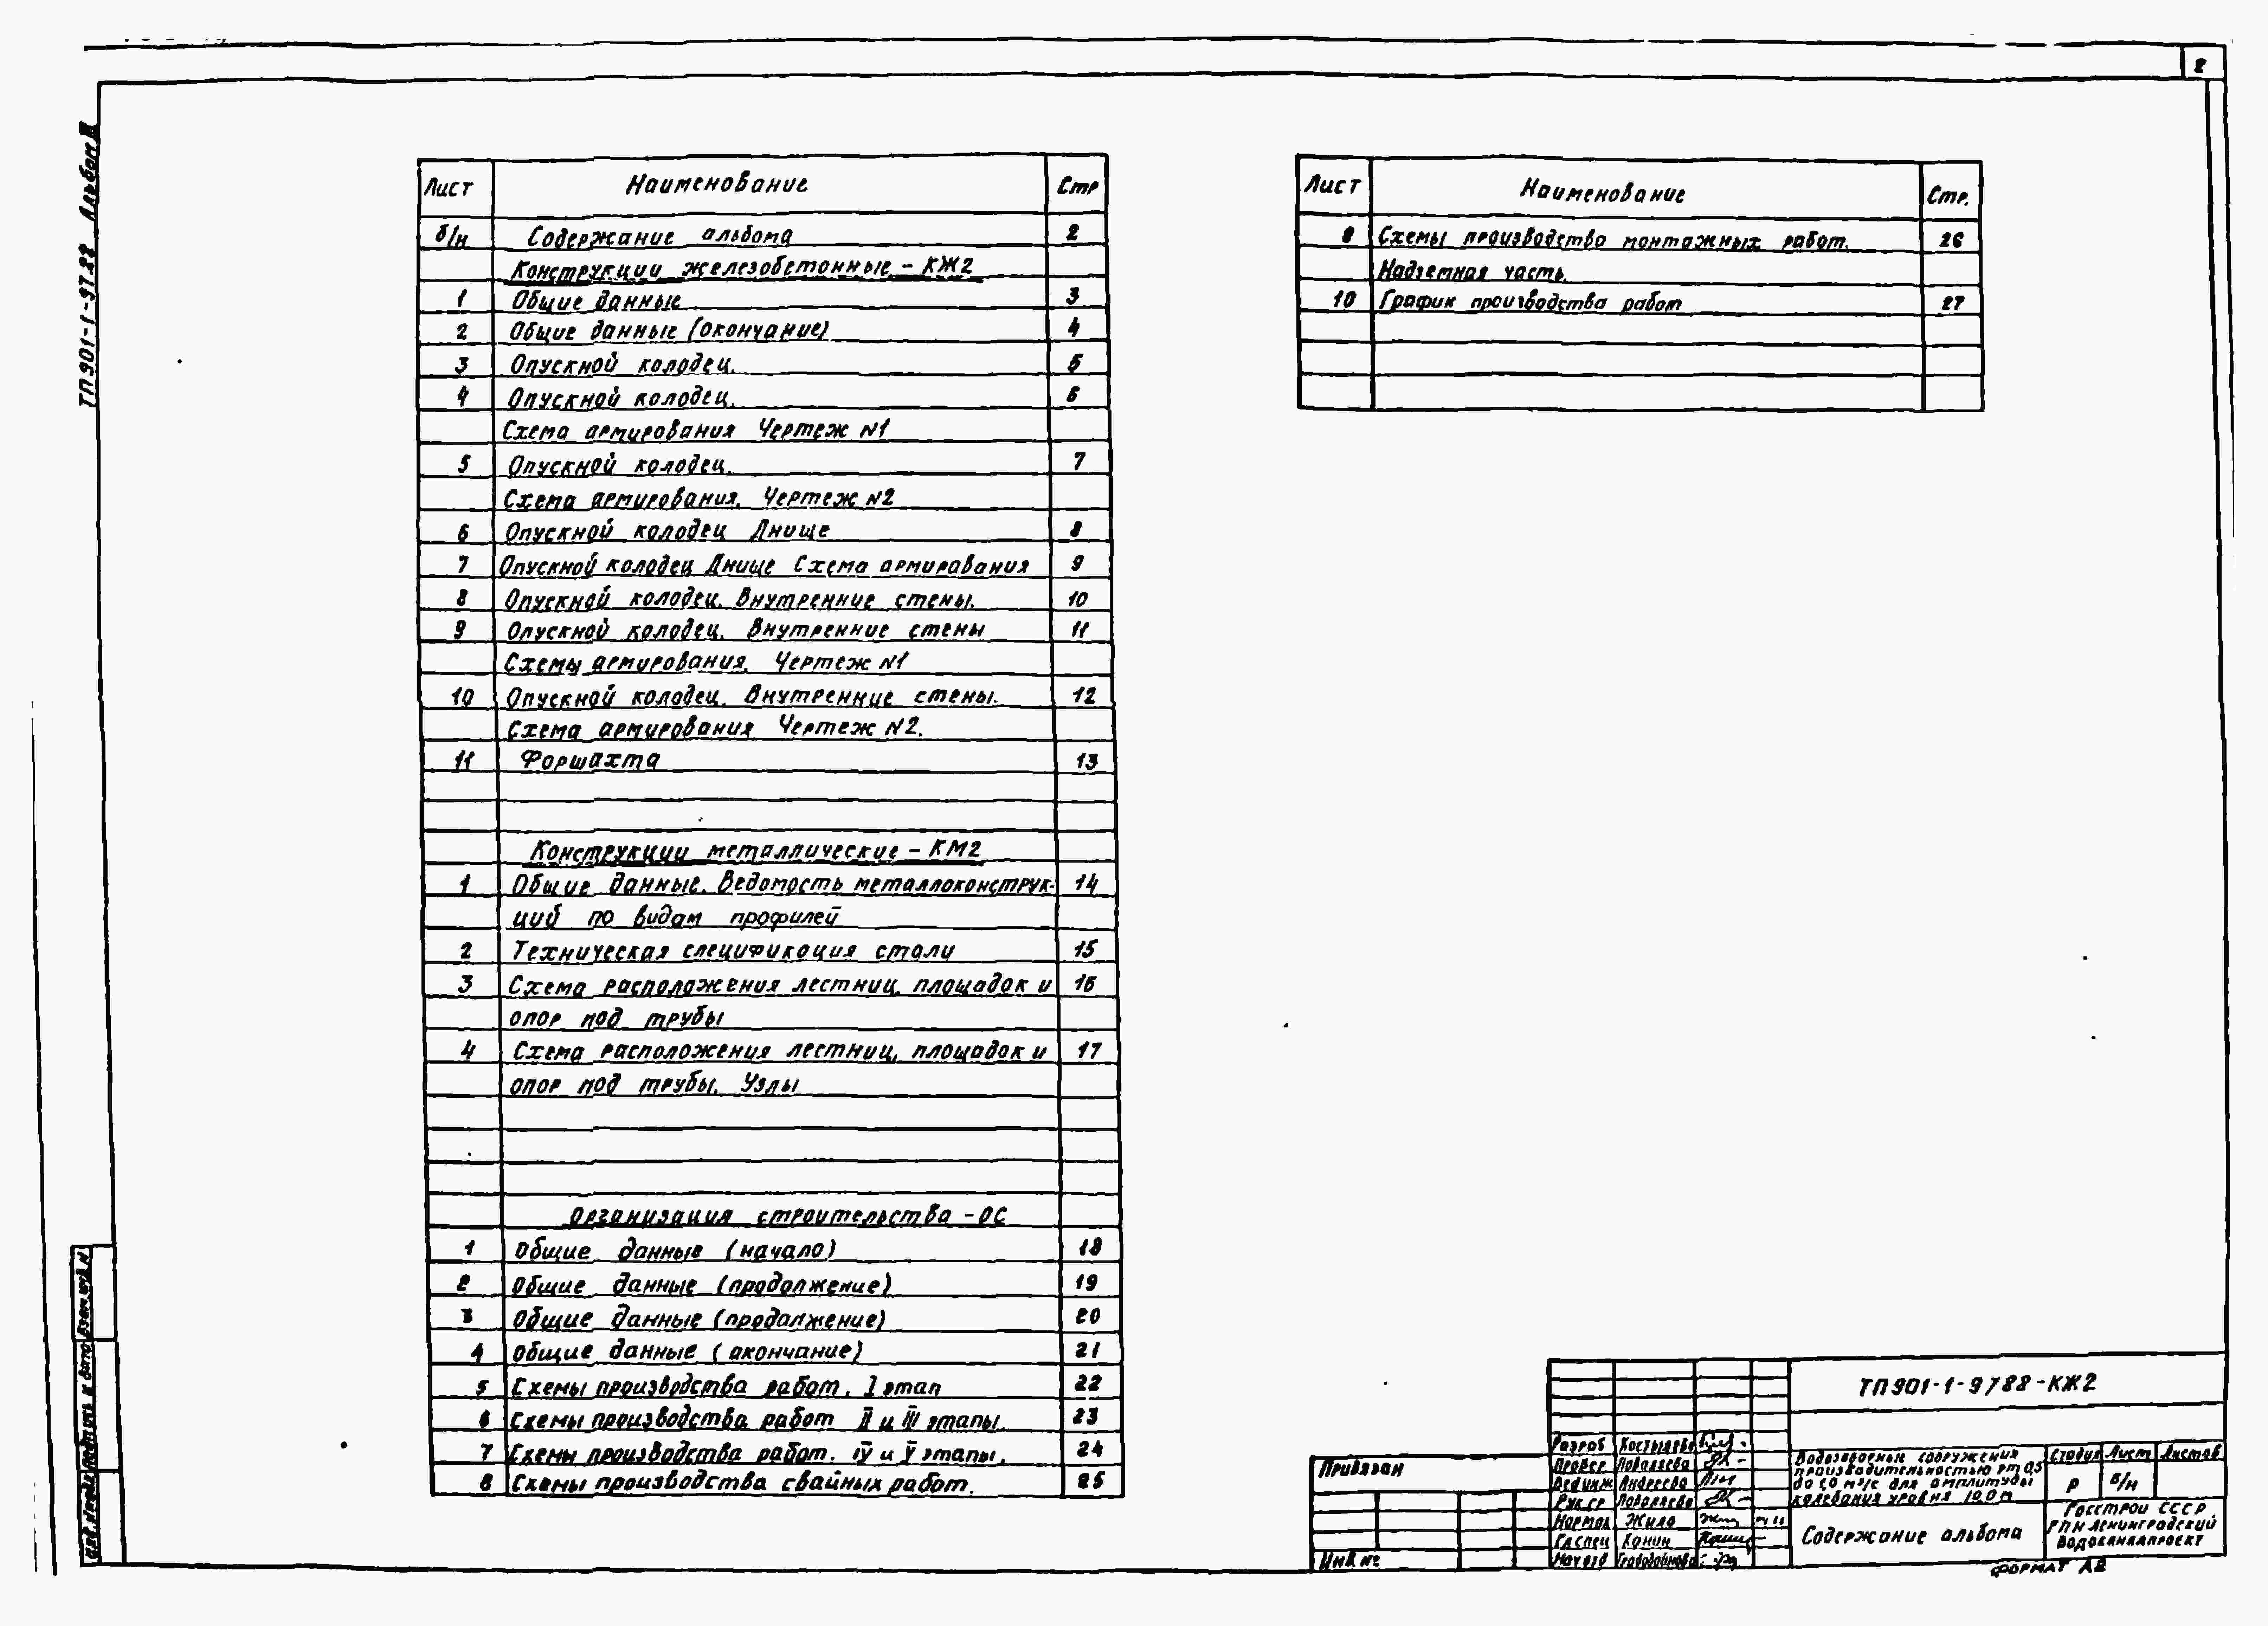 2
ТП 901-1-97.88 Альбом III
Лист Наименование Стр
б/н Содержание альбома 2
Конструкции железобетонные - КЖ2
1 Общие данные 3
2 Общие данные (окончание) 4
3 Опускной колодец. 5
4 Опускной колодец. 6
Схема армирования Чертеж N1
5 Опускной колодец. 7
Схема армирования. Чертеж N2
6 Опускной колодец Днище 8
7 Опускной колодец Днище Схема армирования 9
8 Опускной колодец. Внутренние стены. 10
9 Опускной колодец. Внутренние стены 11
Схемы армирования. Чертеж N1
10 Опускной колодец. Внутренние стены. 12
Схема армирования Чертеж N2.
11 Форшахта 13
Конструкции металлические - КМ2
1 Общие данные. Ведомость металлоконструк- 14
ций по видам профилей
2 Техническая спецификация стали 15
3 Схема расположения лестниц, площадок и 16
опор под трубы
4 Схема расположения лестниц, площадок и 17
опор под трубы. Узлы
Организация строительства - ОС
1 Общие данные (начало) 18
2 Общие данные (продолжение) 19
3 Общие данные (продолжение) 20
4 Общие данные (окончание) 21
5 Схемы производства работ. I этап 22
6 Схемы производства работ II и III этапы. 23
7 Схемы производства работ. IV и V этапы. 24
8 Схемы производства свайных работ. 25
Лист Наименование Стр.
9 Схемы производства монтажных работ. 26
Надземная часть.
10 График производства работ 27
Взам. инв. N
Подпись и дата
Инв. N подл
Привязан
Инв №
Разраб Костылева
Провер Поваляева
Вед.инж Андреева
Рук.гр Поваляева
Нормок Жила
Гл.спец Ханин
Нач отд
ТП 901-1-97.88-КЖ2
Водозаборные сооружения
производительностью от 0,5
до 1,0 м³/с для амплитуды
колебания уровня 10,0 м
Стадия Лист Листов
Р б/н
Содержание альбома
Госстрой СССР
ГПИ Ленинградский
Водоканалпроект
ФОРМАТ А2